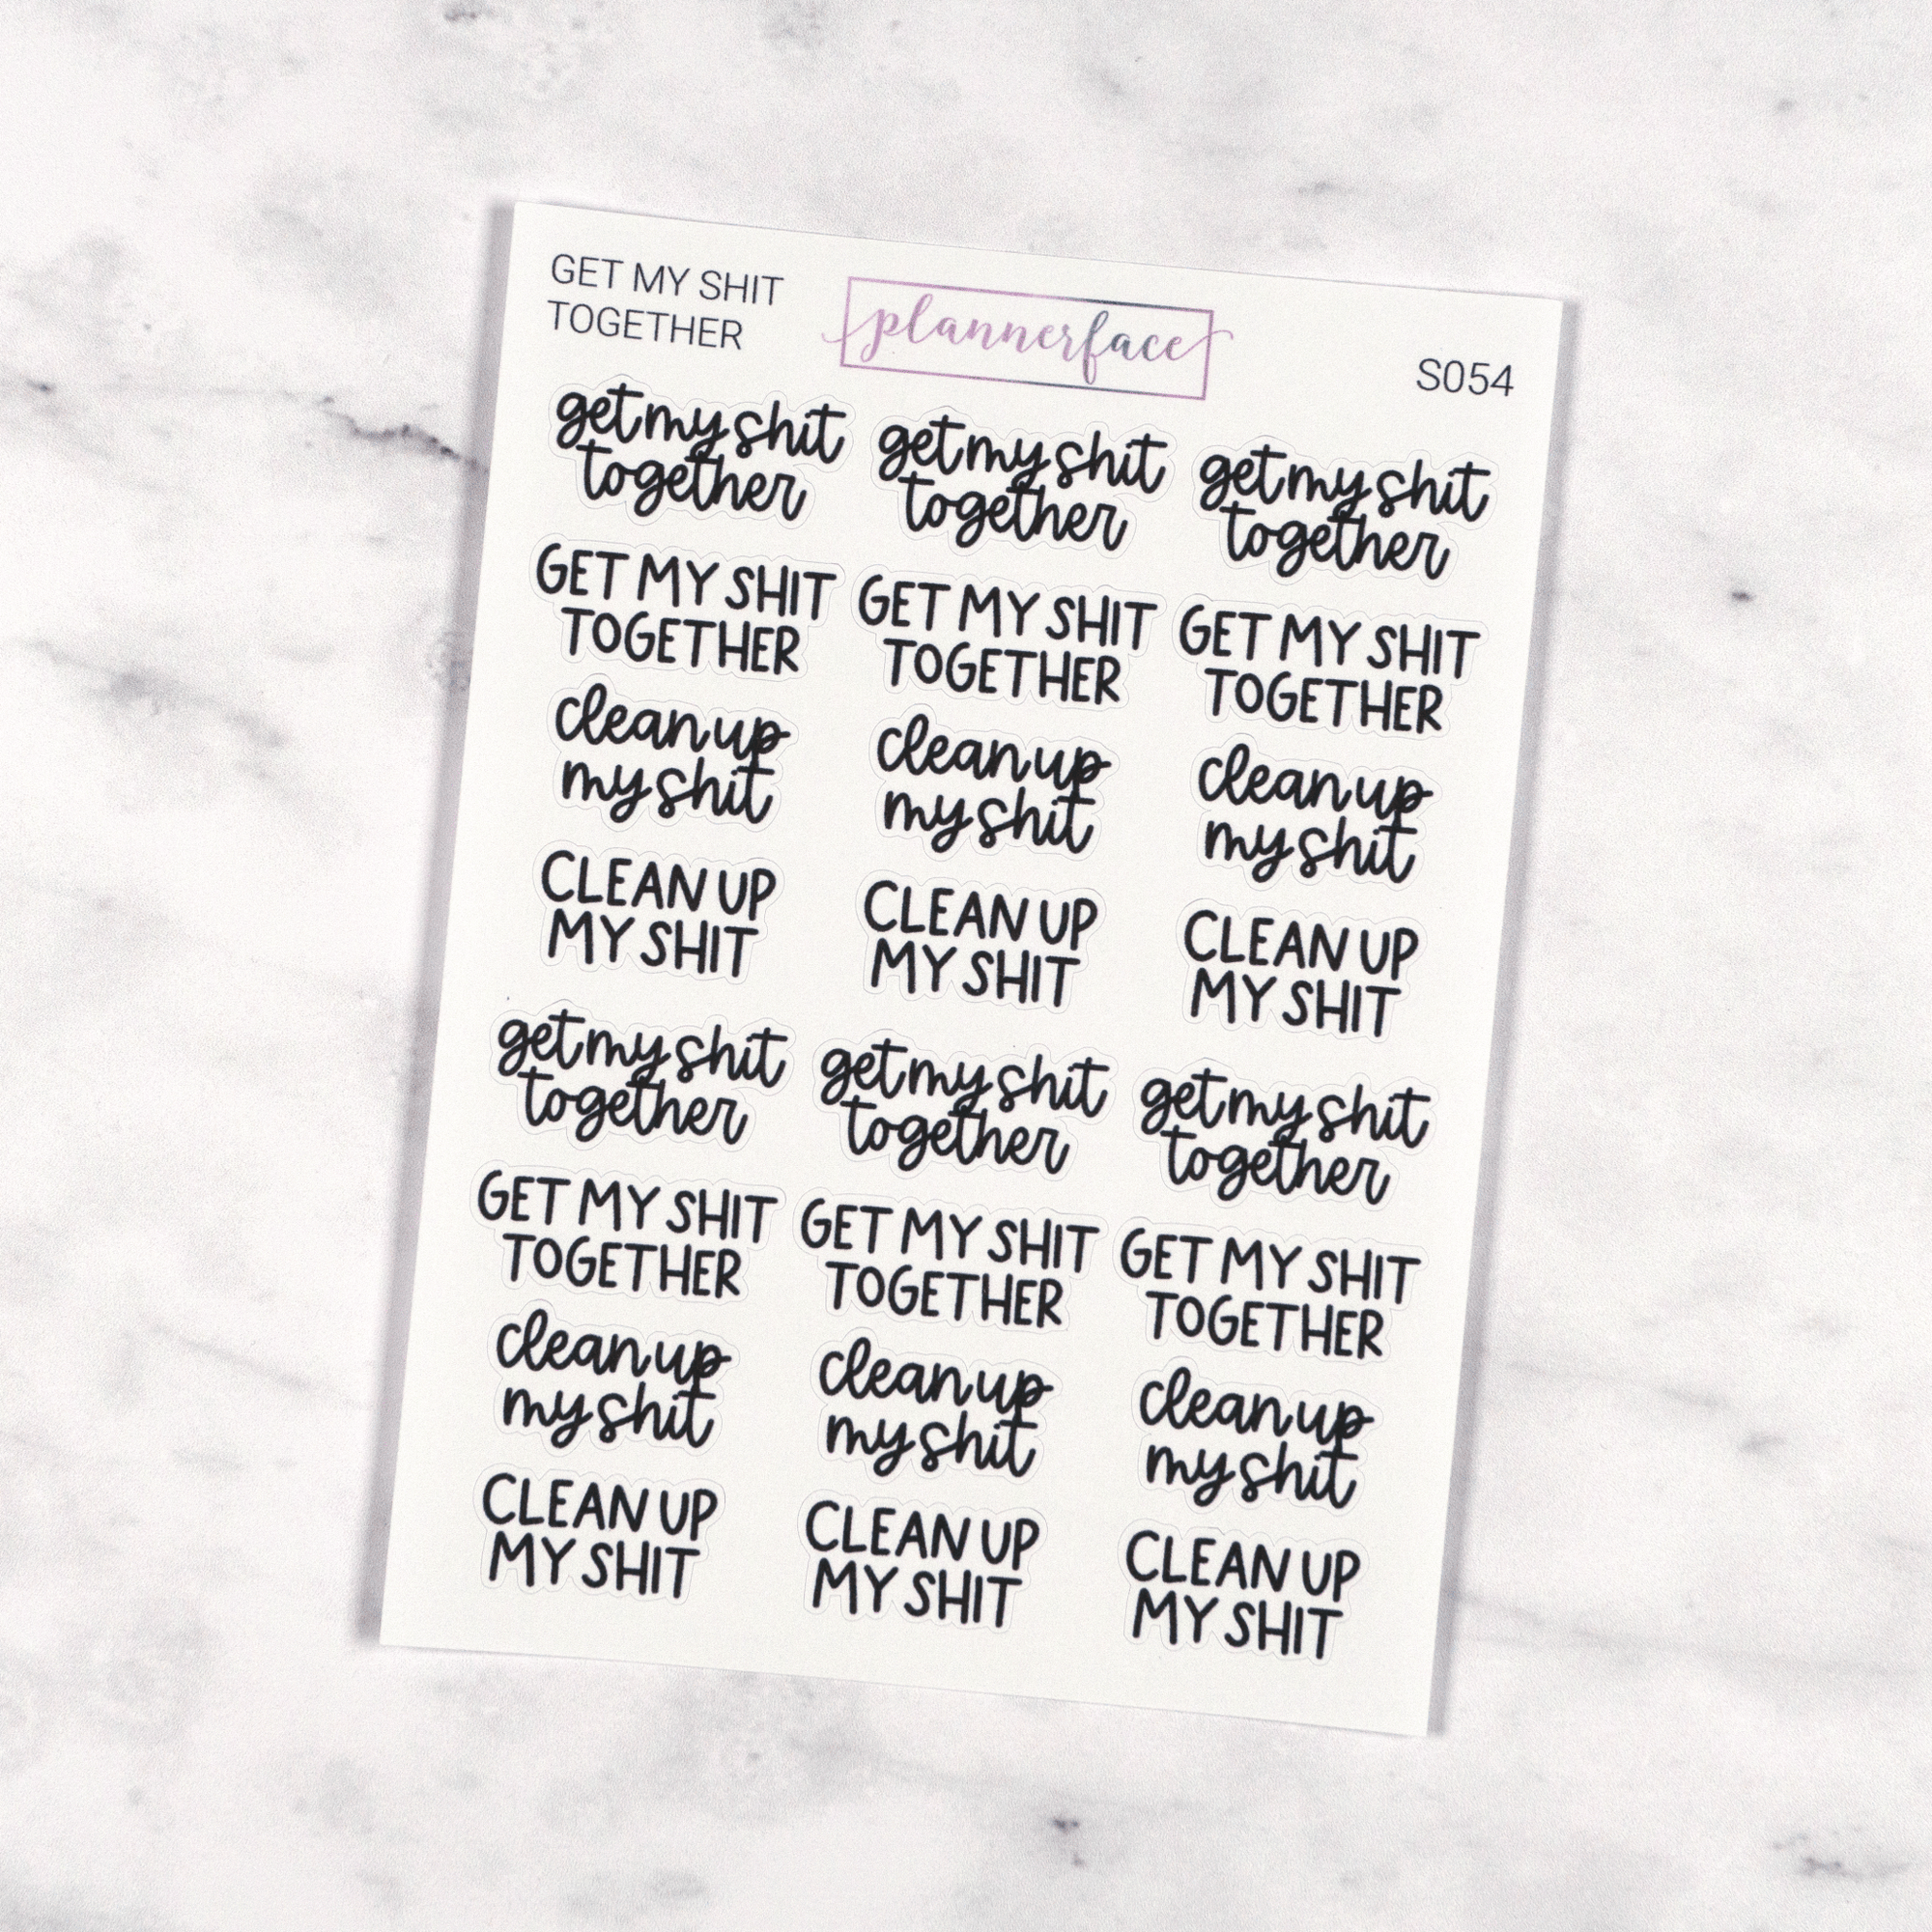 GET MY SHIT
TOGETHER
plannerface
S054
get my shit
together
get my shit
together
get my shit
together
GET MY SHIT
TOGETHER
GET MY SHIT
TOGETHER
GET MY SHIT
TOGETHER
clean up
my shit
clean up
my shit
clean up
my shit
CLEAN UP
MY SHIT
CLEAN UP
MY SHIT
CLEAN UP
MY SHIT
get my shit
together
get my shit
together
get my shit
together
GET MY SHIT
TOGETHER
GET MY SHIT
TOGETHER
GET MY SHIT
TOGETHER
clean up
my shit
clean up
my shit
clean up
my shit
CLEAN UP
MY SHIT
CLEAN UP
MY SHIT
CLEAN UP
MY SHIT